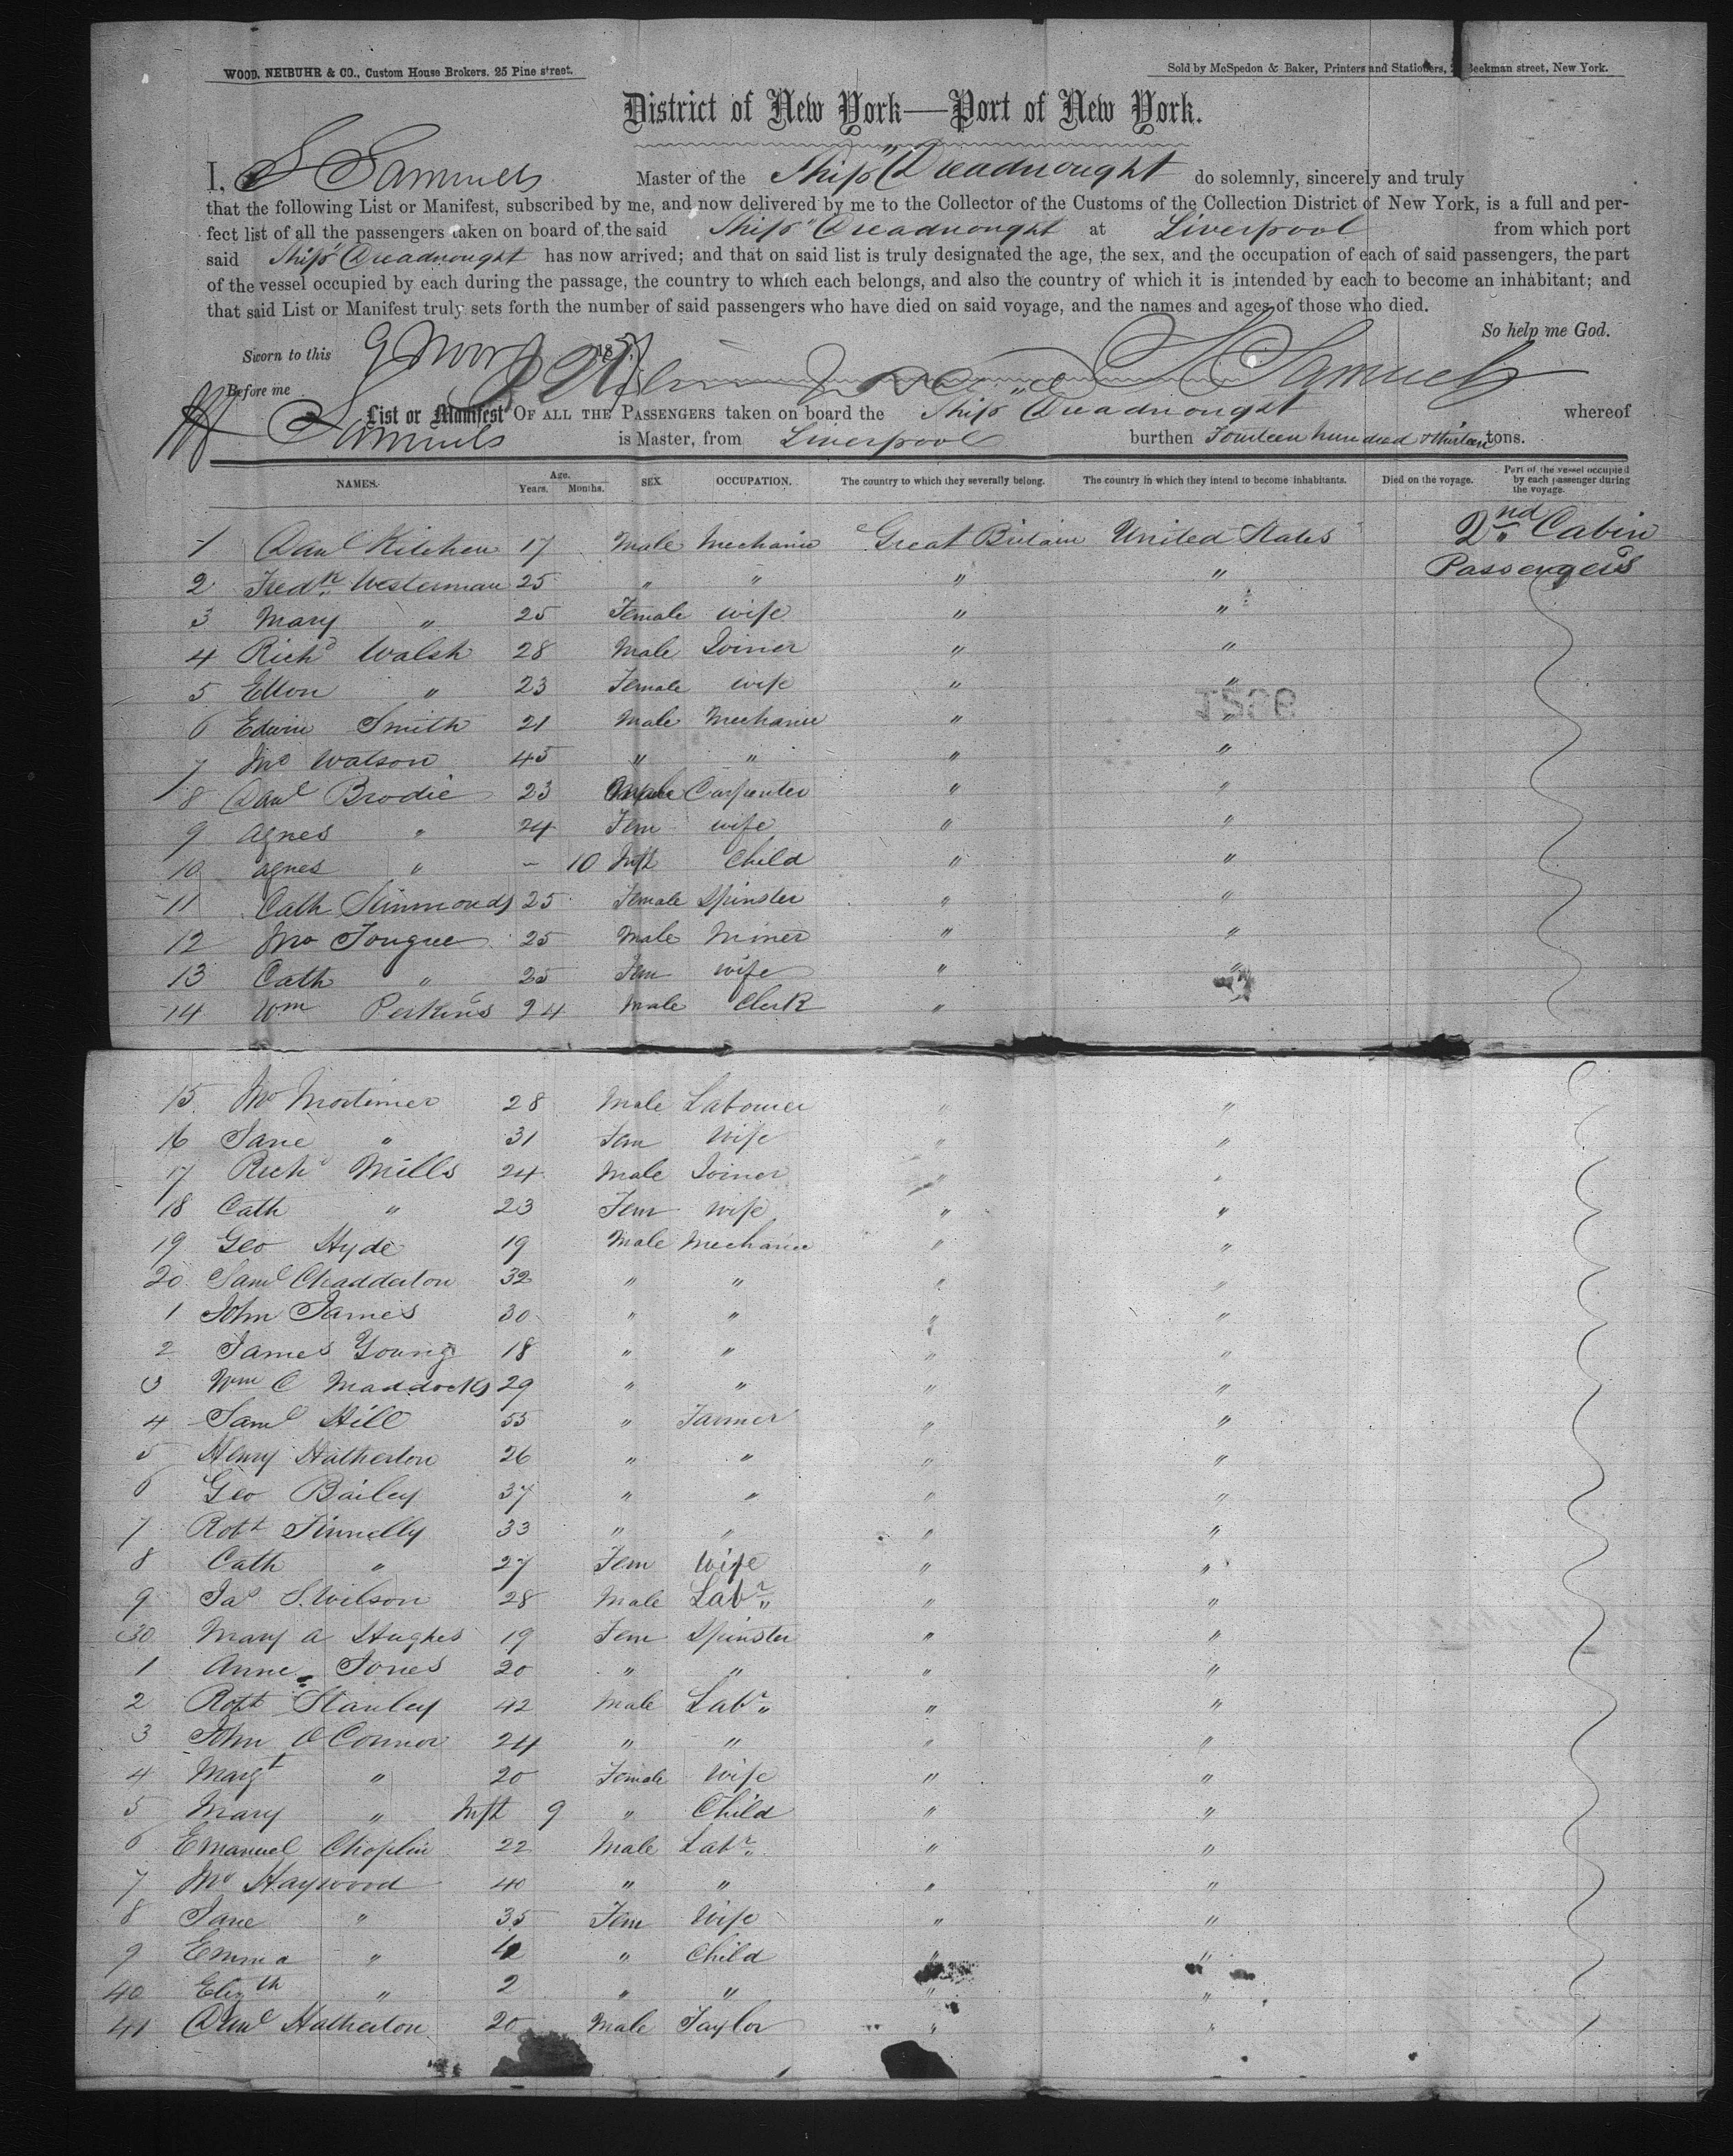 WOOD, NEIBUHR & CO., Custom House Brokers. 25 Pine street.
Sold by McSpedon & Baker, Printers and Stationers, Beekman street, New York.
District of New York—Port of New York.
I, S Samuels Master of the Ship "Dreadnought do solemnly, sincerely and truly
that the following List or Manifest, subscribed by me, and now delivered by me to the Collector of the Customs of the Collection District of New York, is a full and per-
fect list of all the passengers taken on board of the said Ship "Dreadnought at Liverpool from which port
said Ship "Dreadnought has now arrived; and that on said list is truly designated the age, the sex, and the occupation of each of said passengers, the part
of the vessel occupied by each during the passage, the country to which each belongs, and also the country of which it is intended by each to become an inhabitant; and
that said List or Manifest truly sets forth the number of said passengers who have died on said voyage, and the names and ages of those who died.
So help me God.
Sworn to this 9 Nov 185
Before me S Samuels
List or Manifest OF ALL THE PASSENGERS taken on board the Ship "Dreadnought whereof
S Samuels is Master, from Liverpool burthen Fourteen hundred & thirteen tons.
NAMES. Age. Years. Months. SEX. OCCUPATION. The country to which they severally belong. The country in which they intend to become inhabitants. Died on the voyage. Part of the vessel occupied by each passenger during the voyage.
1 Danl Kitchen 17 Male Mechanic Great Britain United States 2nd Cabin
2 Fredk Westerman 25 " " " " Passengers
3 Mary " 25 Female wife " "
4 Richd Walsh 28 Male Joiner " "
5 Ellen " 23 Female wife " "
6 Edwin Smith 21 Male Mechanic " "
7 Jno Watson 45 " " " "
8 Danl Brodie 23 Male Carpenter " "
9 Agnes " 24 Fem wife " "
10 Agnes " – 10 Inft Child " "
11 Cath Simmonds 25 Female Spinster " "
12 Jno Tongue 25 Male Miner " "
13 Cath " 25 Fem wife " "
14 Wm Perkins 24 Male Clerk "
15 Jno Mortimer 28 Male Labourer " "
16 Jane " 31 Fem Wife " "
17 Richd Mills 24 Male Joiner " "
18 Cath " 23 Fem wife " "
19 Geo Hyde 19 Male Mechanic " "
20 Saml Chadderton 32 " " " "
1 John James 30 " " " "
2 James Young 18 " " " "
3 Wm C Maddocks 29 " " " "
4 Saml Hill 55 " Farmer " "
5 Henry Hatherton 26 " " " "
6 Geo Bailey 37 " " " "
7 Robt Finnelly 33 " " " "
8 Cath " 27 Fem Wife " "
9 Jas S. Wilson 28 Male Labr " "
30 Mary A Hughes 19 Fem Spinster " "
1 Anne Jones 20 " " " "
2 Robt Stanley 42 Male Labr " "
3 John O'Connor 24 " " " "
4 Margt " 20 Female Wife " "
5 Mary " Inft 9 " Child " "
6 Emanuel Choplin 22 Male Labr " "
7 Jno Haywood 40 " " " "
8 Jane " 35 Fem Wife " "
9 Emma " 4 " Child " "
40 Elizth " 2 " " " "
41 Danl Hatherton 20 Male Taylor " "